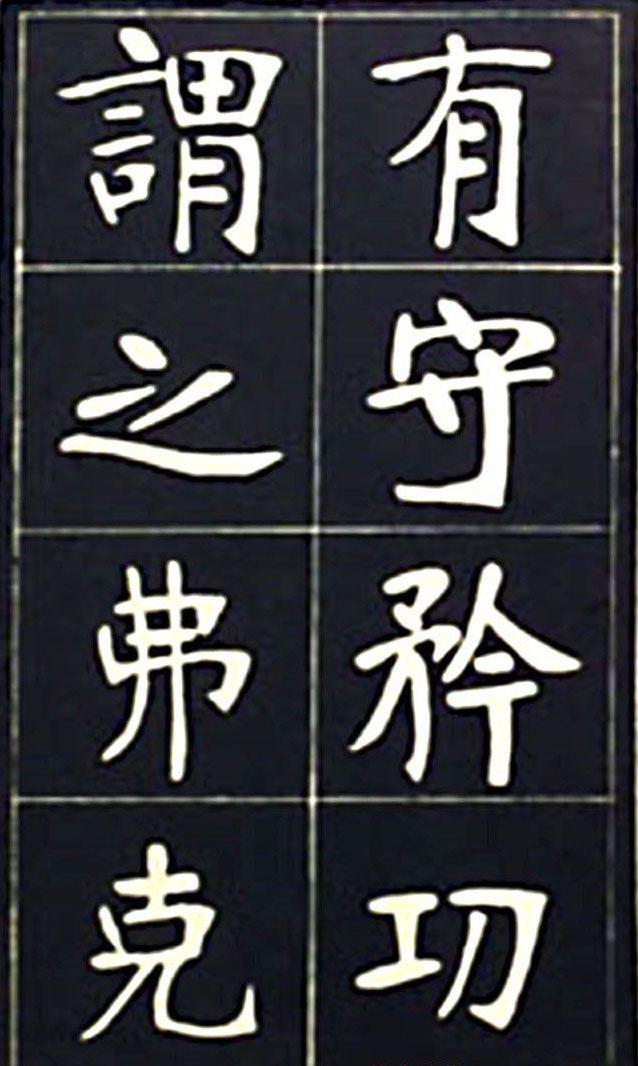 有守矜功
謂之弗克